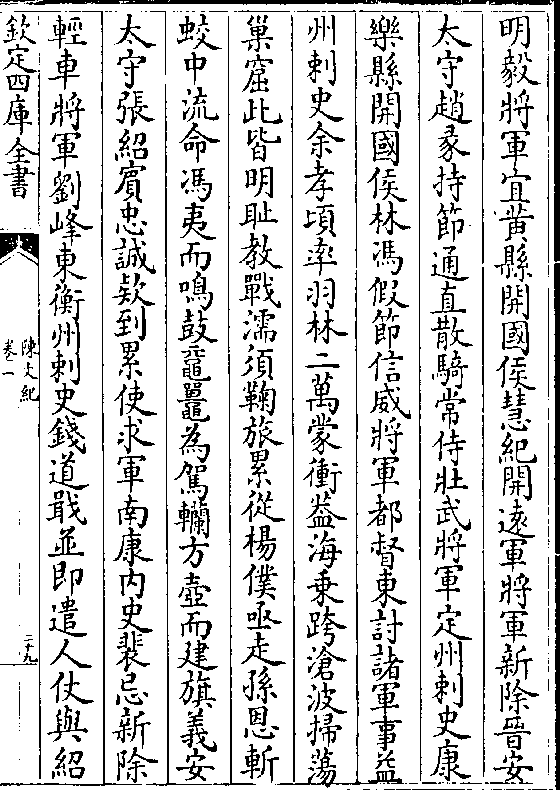 明毅將軍宜黄縣開國侯慧紀開遠軍將軍新除晉安
太守趙彖持節通直散騎常侍壯武將軍定州刺史康
樂縣開國侯林馮假節信威將軍都督東討諸軍事益
州刺史余孝頃率羽林二萬蒙衝葢海乗跨滄波掃蕩
巢窟此皆明恥教戰濡須鞠旅累從楊僕亟走孫恩斬
蛟中流命馮夷而鳴鼓黿鼉為駕轥方壺而建旗義安
太守張紹賓忠誠欵到累使求軍南康内史裴忌新除
輕車將軍劉峰東衡州刺史錢道戢並即遣人仗與紹
欽定四庫全書
陳文紀
卷一
二十九